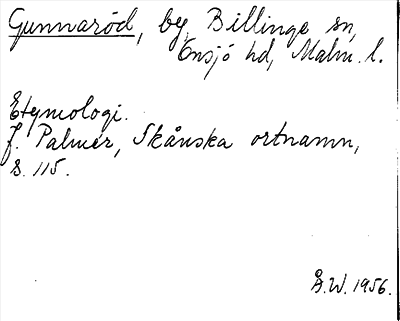 Gunnaröd, by, Billinge sn,
Onsjö hd, Malm. l.
Etymologi.
J. Palmér, Skånska ortnamn,
s. 115.
Å.W. 1956.